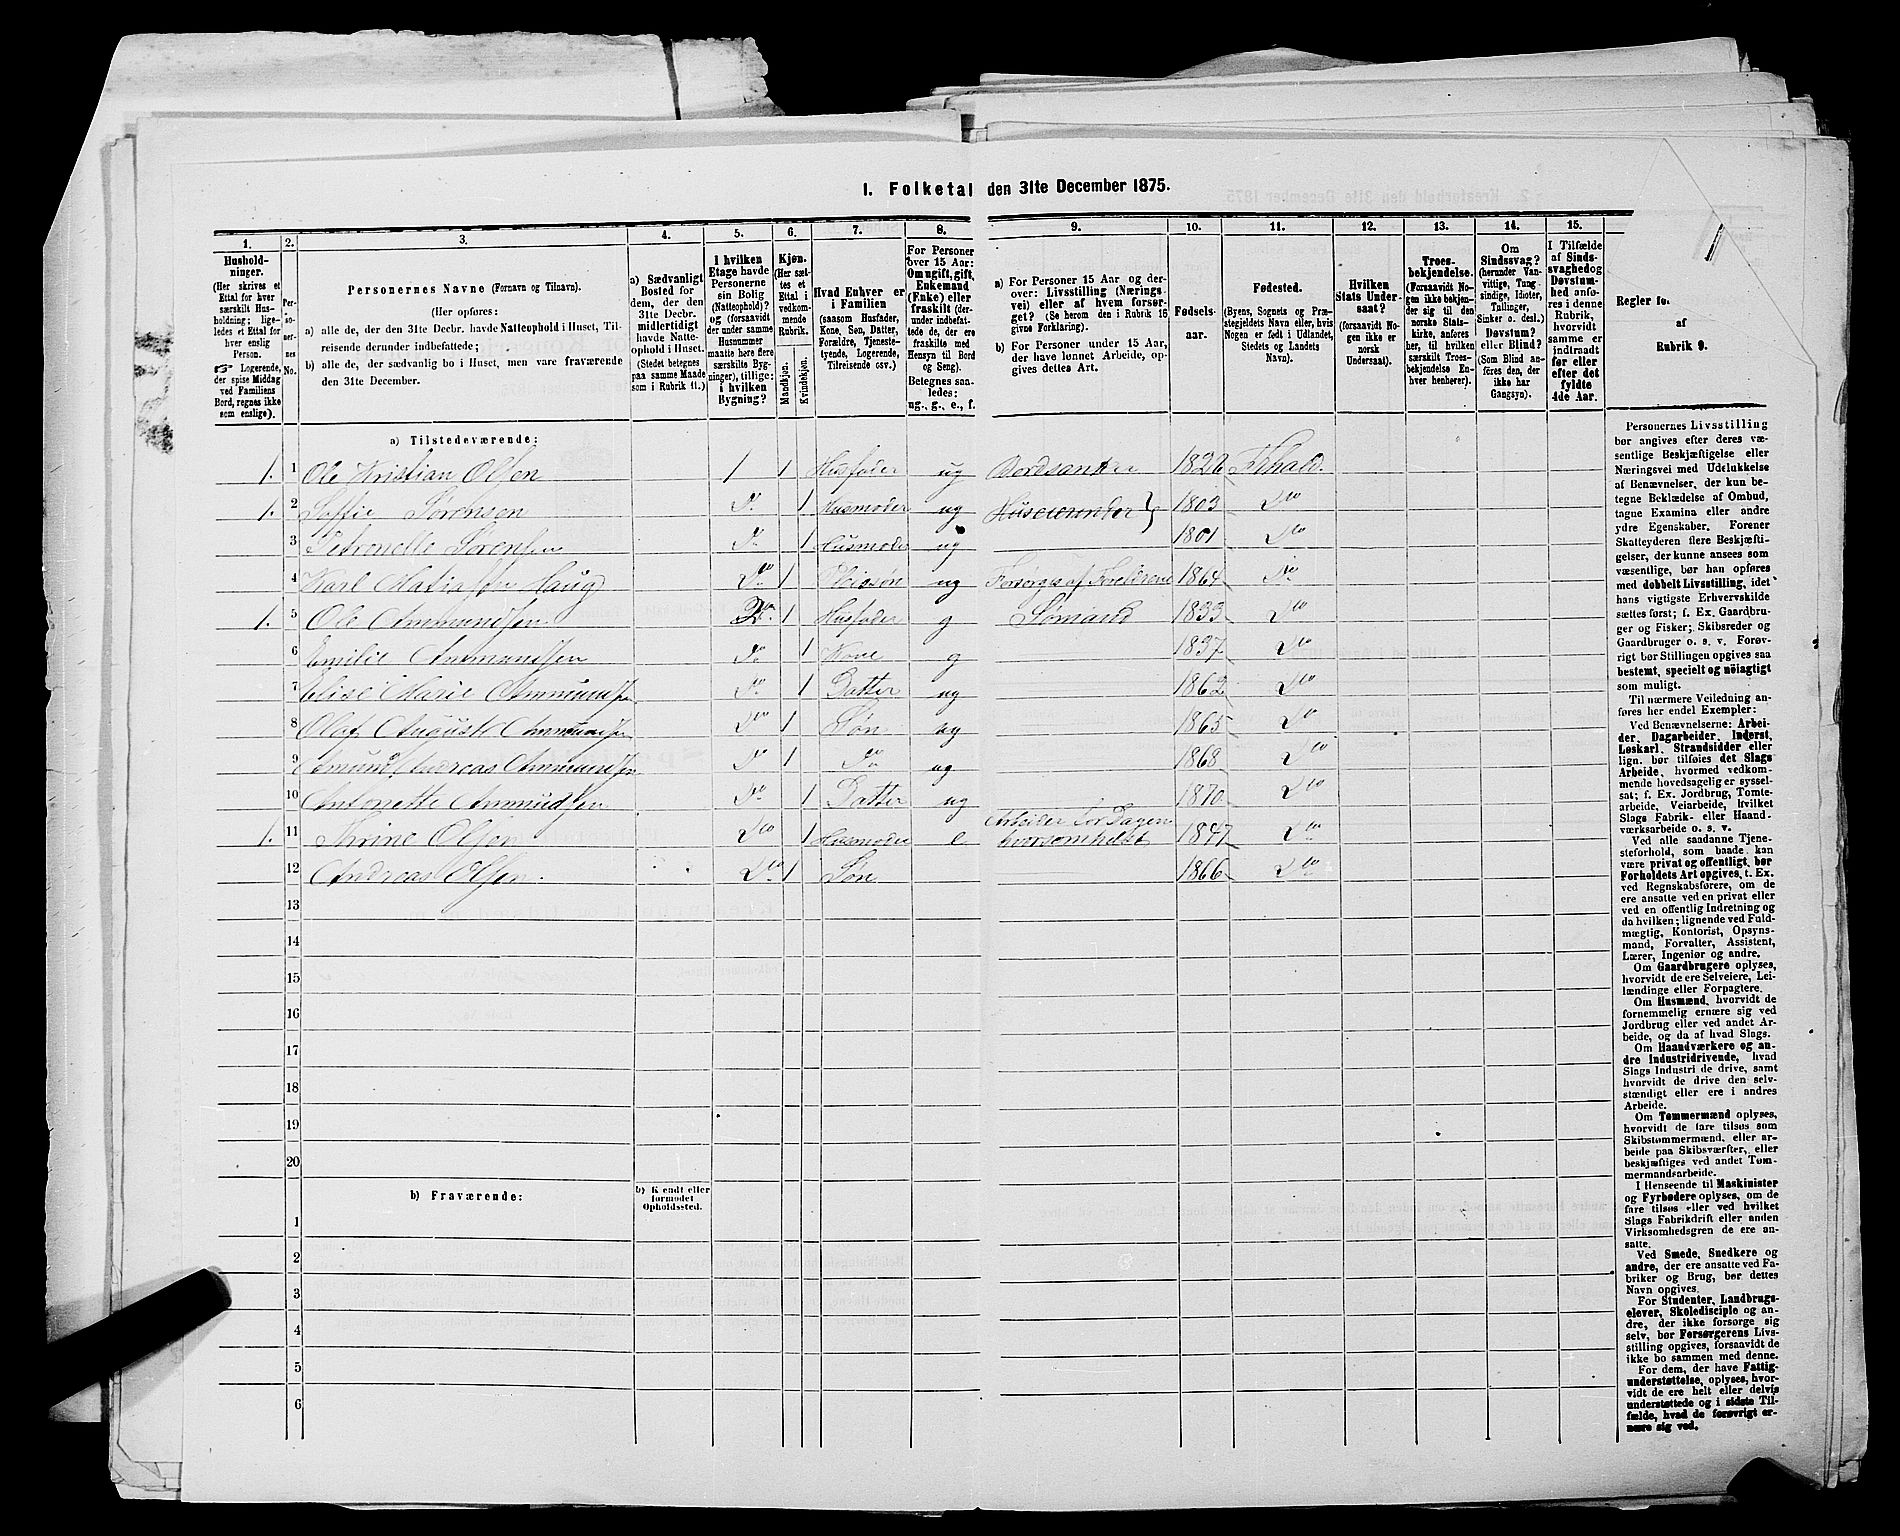 I. Folketal den 31te December 1875.
1. 2. 3. 4. 5. 6. 7. 8. 9. 10. 11. 12. 13. 14. 15.
Hushold-
ninger.
(Her skrives et
Ettal for hver
særskilt Hus-
holdning; lige-
ledes et Ettal for
hver enslig
Person.
☞ Logerende,
der spise Middag
ved Familiens
Bord, regnes ikke
som enslige).
Per-
so-
ner-
nes
No.
Personernes Navne (Fornavn og Tilnavn).
(Her opføres:
a) alle de, der den 31te Decbr. havde Natteophold i Huset, Til-
reisende derunder indbefattede;
b) alle de, der sædvanlig bo i Huset, men vare fraværende
den 31te December.
a) Sædvanligt
Bosted for
dem, der den
31te Decbr.
midlertidigt
havde Natte-
ophold i Huset.
(Stedet betegnes
paa samme Maade
som i Rubrik 11.)
I hvilken
Etage havde
Personerne
sin Bolig
(Natteophold)?
og (forsaavidt
der under samme
Husnummer
maatte høre flere
særskilte Byg-
ninger), tillige:
i hvilken
Bygning?
Kjøn.
(Her sæt-
tes et
Ettal i
vedkom-
mende
Rubrik.
Mandkjøn.
Kvindekjøn.
Hvad Enhver er
i Familien
(saasom Husfader,
Kone, Søn, Datter,
Forældre, Tjeneste-
tyende, Logerende,
Tilreisende osv.)
For Personer
over 15 Aar:
Om ugift, gift,
Enkemand
(Enke) eller
fraskilt (der-
under indbefat-
tede de, der ere
fraskilte med
Hensyn til Bord
og Seng).
Betegnes saa-
ledes:
ug., g., e., f.
a) For Personer 15 Aar og der-
over: Livsstilling (Nærings-
vei) eller af hvem forsør-
get? (Se herom den i Rubrik 16
givne Forklaring).
b) For Personer under 15 Aar,
der have lønnet Arbeide, op-
gives dettes Art.
Fødsels-
aar.
Fødested.
(Byens, Sognets og Præ-
stegjeldets Navn eller, hvis
Nogen er født i Udlandet,
Stedets og Landets
Navn).
Hvilken
Stats Under-
saat?
(forsaavidt No-
gen ikke er
norsk
Undersaat).
Troes-
bekjendelse.
(Forsaavidt No-
gen ikke bekjen-
der sig til den
norske Stats-
kirke, anføres
her, til hvilken
særskilt Troes-
bekjendelse En-
hver henhører).
Om
Sindssvag?
(herunder Van-
vittige, Tung-
sindige, Idioter,
Tullinger,
Sinker o. desl.)
Døvstum?
eller Blind?
(Som Blind an-
føres den, der
ikke har
Gangsyn).
I Tilfælde
af Sinds-
svaghed og
Døvstum-
hed anfø-
res i denne
Rubrik,
hvorvidt
samme er
indtraadt
før eller
efter det
fyldte
4de Aar.
Regler for
af
Rubrik 9.
a) Tilstedeværende:
1. 1 Ole Kristian Olsen 1 1 Husfader ug 1826 Frhald.
1. 2 Soffie Sørensen Do 1 Husmoder ug Huseierinder } 1803 Do
3 Petronelle Sørensen Do 1 Husmoder ug 1801 Do
4 Karl Haug Do 1 Pleiesøn ug Forsørges af Foreldrene 1864 Do
1. 5 Ole Ammundsen Do 1 Husfader g Sømand 1833 Do
6 Emilie Ammundsen Do 1 Kone g 1837 Do
7 Elise Marie Ammundsen Do 1 Datter ug 1862 Do
8 Olaf August Ammundsen Do 1 Søn ug 1865 Do
9 Amund Andreas Ammundsen Do 1 Do ug 1868 Do
10 Antonette Ammudsen Do 1 Datter ug 1870 Do
1. 11 Thrine Olsen Do 1 Husmoder e Arbeider for Dagen hvorsomhelst 1847 Do
12 Andreas Olsen. Do 1 Søn 1866 Do
13
14
15
16
17
18
19
20
b) Fraværende:
b) Kjendt eller
formodet
Opholdssted.
1
2
3
4
5
6
Personernes Livsstilling
bør angives efter deres væ-
sentlige Beskjæftigelse eller
Næringsvei med Udelukkelse
af Benævnelser, der kun be-
tegne Beklædelse af Ombud,
tagne Examina eller andre
ydre Egenskaber. Forener
Skatteyderen flere Beskjæfti-
gelser, der kunne ansees som
væsentlige, bør han opføres
med dobbelt Livsstilling, idet
hans vigtigste Erhvervskilde
sættes først; f. Ex. Gaardbru-
ger og Fisker; Skibsreder og
Gaardbruger o. s. v. Forøv-
rigt bør Stillingen opgives saa
bestemt, specielt og nøiagtigt
som muligt.
Til nærmere Veiledning an-
føres her endel Exempler:
Ved Benævnelserne: Arbei-
der, Dagarbeider, Inderst,
Løskarl, Strandsidder eller
lign. bør tilføies det Slags
Arbeide, hvormed vedkom-
mende hovedsagelig er syssel-
sat; f. Ex. Jordbrug, Tomte-
arbeide, Veiarbeide, hvilket
Slags Fabrik- eller Haand-
værksarbeide o. s. v.
Ved alle saadanne Tjene-
steforhold, som baade kan
være privat og offentligt, bør
Forholdets Art opgives, t. Ex.
ved Regnskabsførere, om de
ere ansatte ved en privat eller
ved en offentlig Indretning og
da hvilken; lignende ved Fuld-
mægtig, Kontorist, Opsyns-
mand, Forvalter, Assistent,
Lærer, Ingeniør og andre.
Om Gaardbrugere oplyses,
hvorvidt de ere Selveiere, Lei-
lændinge eller Forpagtere.
Om Husmænd, hvorvidt de
fornemmelig ernære sig ved
Jordbrug eller ved andet Ar-
beide, og da af hvad Slags.
Om Haandværkere og an-
dre Industridrivende, hvad
Slags Industri de drive, samt
hvorvidt de drive den selv-
stændigt eller ere i andres
Arbeide.
Om Tømmermænd oplyses,
hvorvidt de fare tilsøs som
Skibstømmermænd, eller ar-
beide paa Skibsværfter, eller
beskjæftiges ved andet Tøm-
mermandsarbeide.
I Henseende til Maskinister
og Fyrbødere oplyses, om de
fare tilsøs eller ved hvilket
Slags Fabrikdrift eller anden
Virksomhedsgren de ere an-
satte.
Ved Smede, Snedkere og
andre, der ere ansatte ved Fa-
briker og Brug, bør dettes
Navn opgives.
For Studenter, Landbrugs-
elever, Skoledisciple og an-
dre, der ikke forsørge sig
selv, bør Forsørgerens Livs-
stilling opgives, forsaavidt de
ikke bo sammen med denne.
For dem, der have Fattig-
understøttelse, oplyses, hvor-
vidt de ere helt eller delvis
understøttede og i sidste Til-
fælde, hvad de forøvrigt er-
nære sig ved.